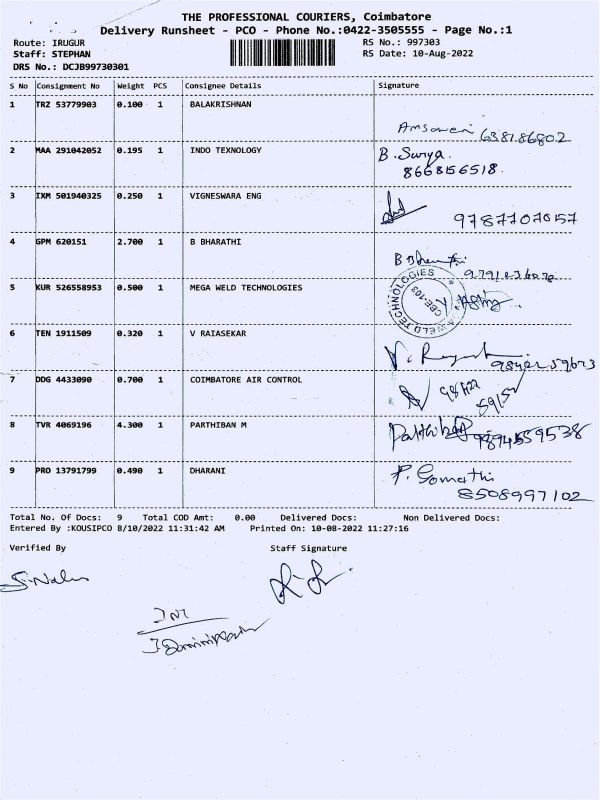 THE PROFESSIONAL COURIERS, Coimbatore
Delivery Runsheet - PCO - Phone No.:0422-3505555 - Page No.:1
Route: IRUGUR RS No.: 997303
Staff: STEPHAN RS Date: 10-Aug-2022
DRS No.: DCJB99730301
S No Consignment No Weight PCS Consignee Details Signature
1 TRZ 53779903 0.100 1 BALAKRISHNAN
638186802
2 MAA 291042052 0.195 1 INDO TEXNOLOGY B. Surya.
8668156518.
3 IXM 501940325 0.250 1 VIGNESWARA ENG
9787707057
4 GPM 620151 2.700 1 B BHARATHI
5 KUR 526558953 0.500 1 MEGA WELD TECHNOLOGIES
CBE-103
6 TEN 1911509 0.320 1 V RAIASEKAR
7 DDG 4433090 0.700 1 COIMBATORE AIR CONTROL
8 TVR 4069196 4.300 1 PARTHIBAN M
9 PRO 13791799 0.490 1 DHARANI P. Gomathi
8508997102
Total No. Of Docs: 9 Total COD Amt: 0.00 Delivered Docs: Non Delivered Docs:
Entered By :KOUSIPCO 8/10/2022 11:31:42 AM Printed On: 10-08-2022 11:27:16
Verified By Staff Signature